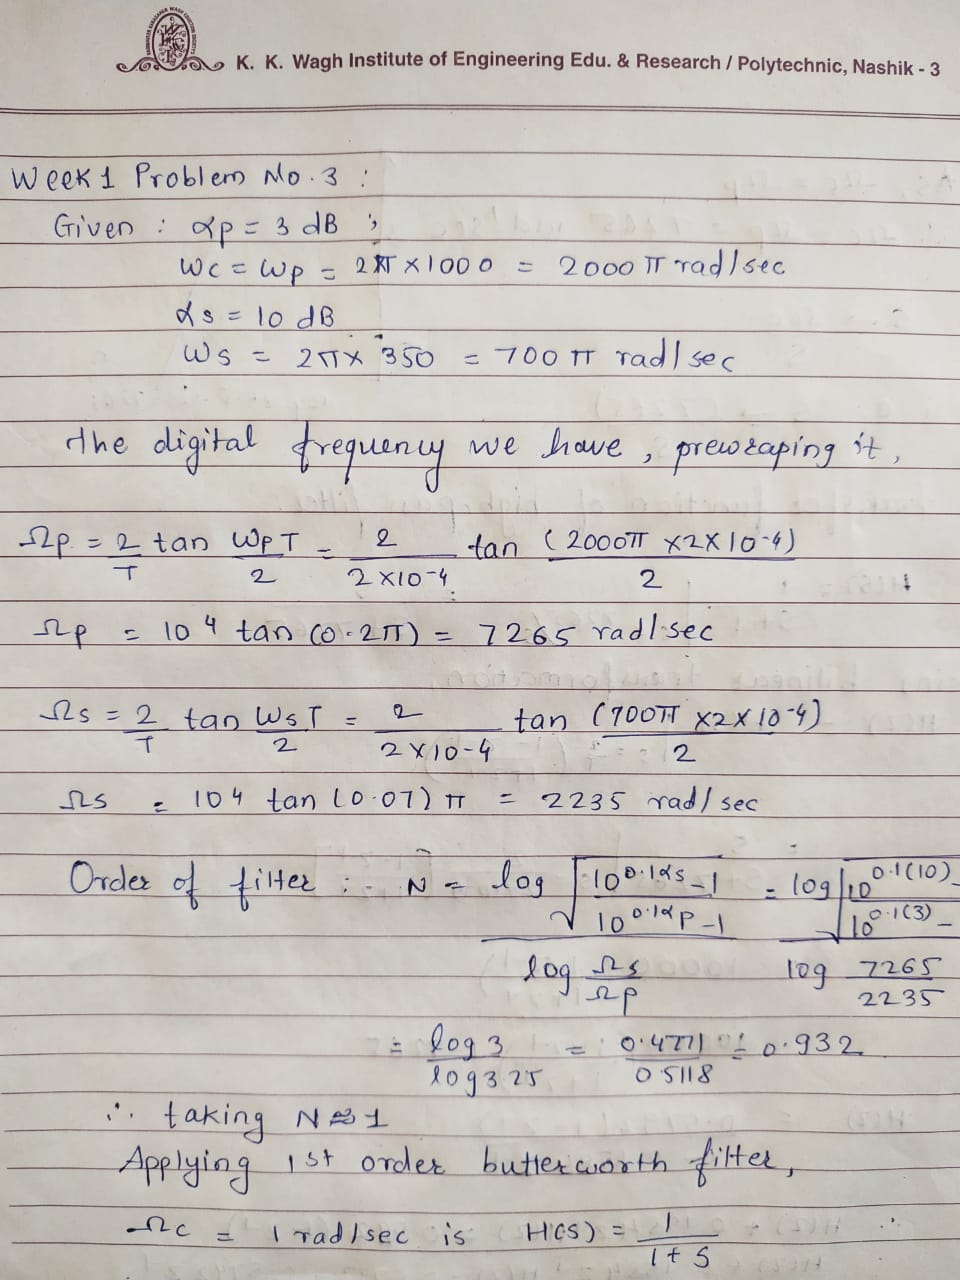 K. K. Wagh Institute of Engineering Edu. & Research / Polytechnic, Nashik - 3
Week 1 Problem No. 3 :
Given : αp = 3 dB ;
Wc = Wp = 2π × 1000 = 2000 π rad/sec
αs = 10 dB
Ws = 2π × 350 = 700 π rad/sec
The digital frequency we have, prewraping it,
Ωp = 2/T tan WpT/2 = 2/(2×10-4) tan (2000π ×2×10-4)/2
Ωp = 10^4 tan (0.2π) = 7265 rad/sec
Ωs = 2/T tan WsT/2 = 2/(2×10-4) tan (700π ×2×10-4)/2
Ωs = 10^4 tan (0.07) π = 2235 rad/sec
Order of filter :- N = log √(10^0.1αs -1 / 10^0.1αp -1) / log Ωs/Ωp = log √(10^0.1(10) - / 10^0.1(3) -) / log 7265/2235
= log 3 / log 3.25 = 0.4771 / 0.5118 = 0.932
∴ taking N ≈ 1
Applying 1st order butterworth filter,
Ωc = 1 rad/sec is H(s) = 1/(1+s)